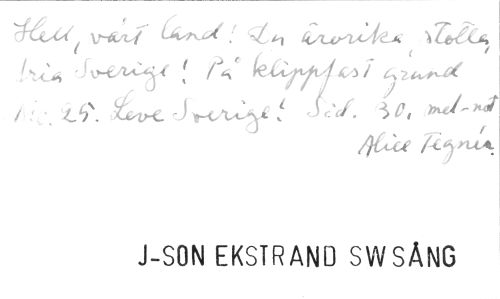 Hell, vårt land! Du ärorika, stolta,
fria Sverige! På klippfast grund
No. 25. Leve Sverige! Sid. 30, mel-not
Alice Tegnér.
J-SON EKSTRAND SWSÅNG